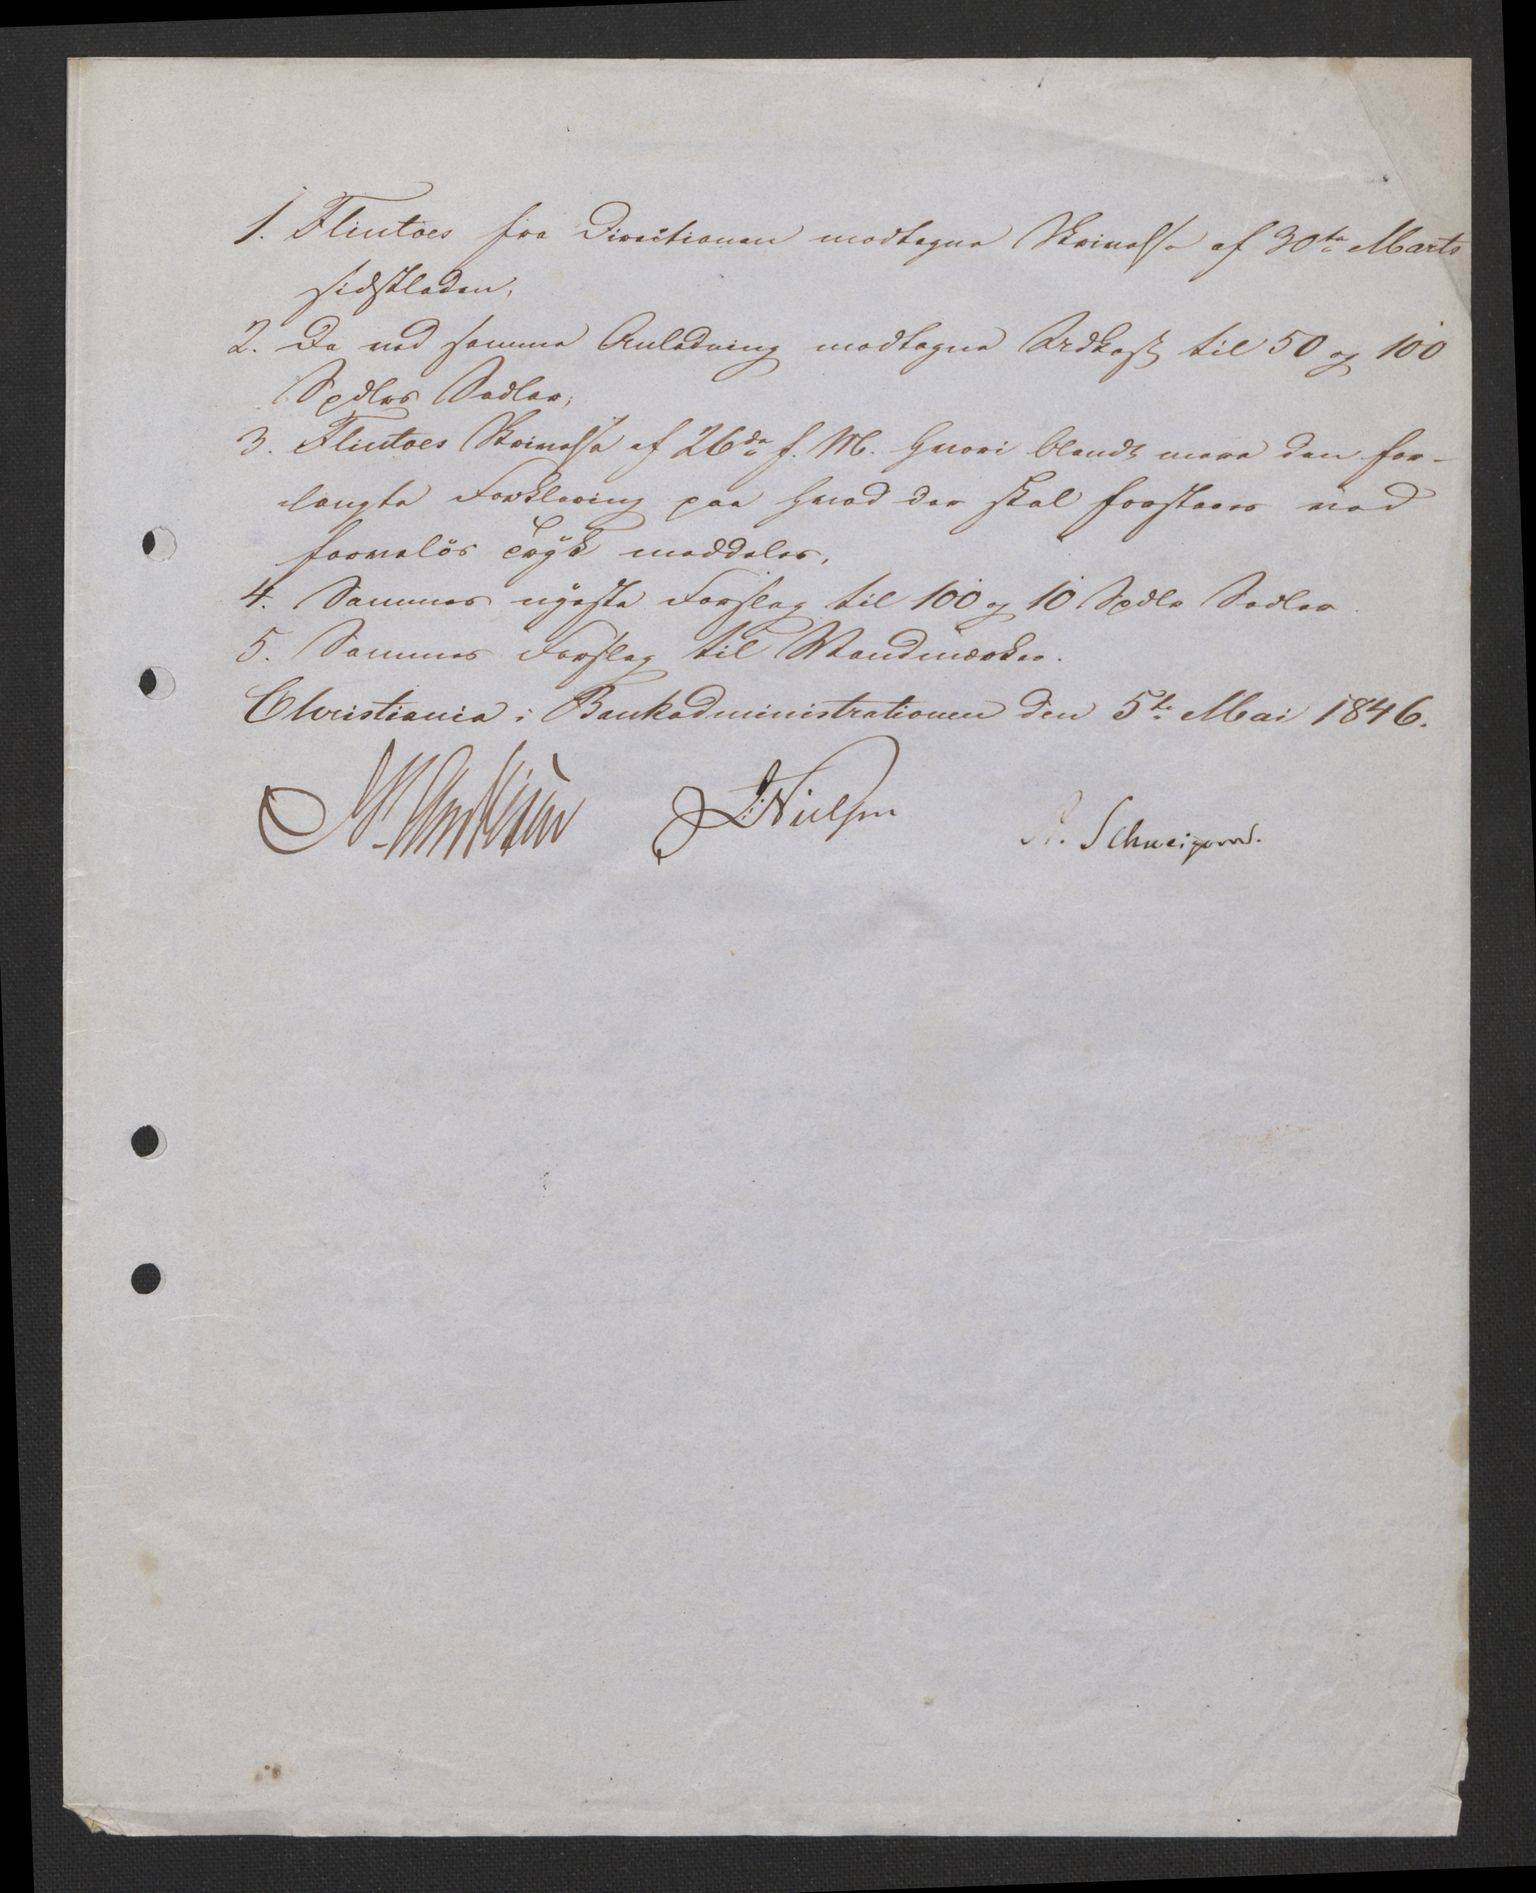 1. Flintoes fra Directionen modtagne Skrivelse af 30te Marts
sidstleden,
2. De ved samme Anledning modtagne Udkast til 50 og 100
Spdlrs Sedler,
3. Flintoes Skrivelse af 26de f. M. hvori blandt mere den for-
langte Forklaring paa hvad der skal forstaaes ved
farvelös Tryk meddeles,
4. Sammes nyeste Forslag til 100 og 10 Spdlr Sedler
5. Sammes Forslag til Vandmærker.
Christiania i Bankadministrationen den 5te Mai 1846.
J: Nielsen A. Schweigaard.